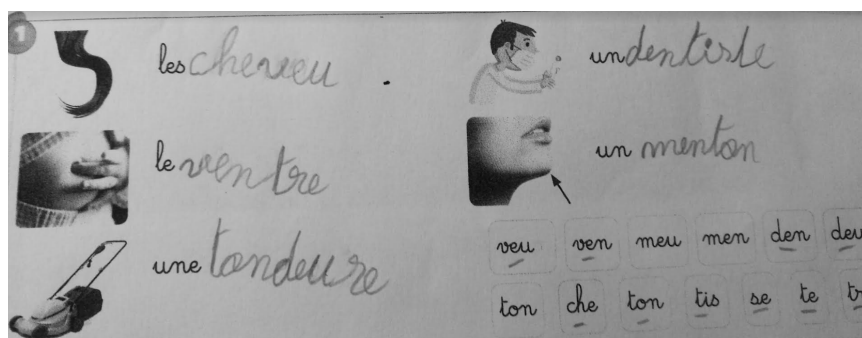 1
les cheveu
le ventre
une tondeure
un dentiste
un menton
veu ven meu men den deu
ton che ton tis se te tr